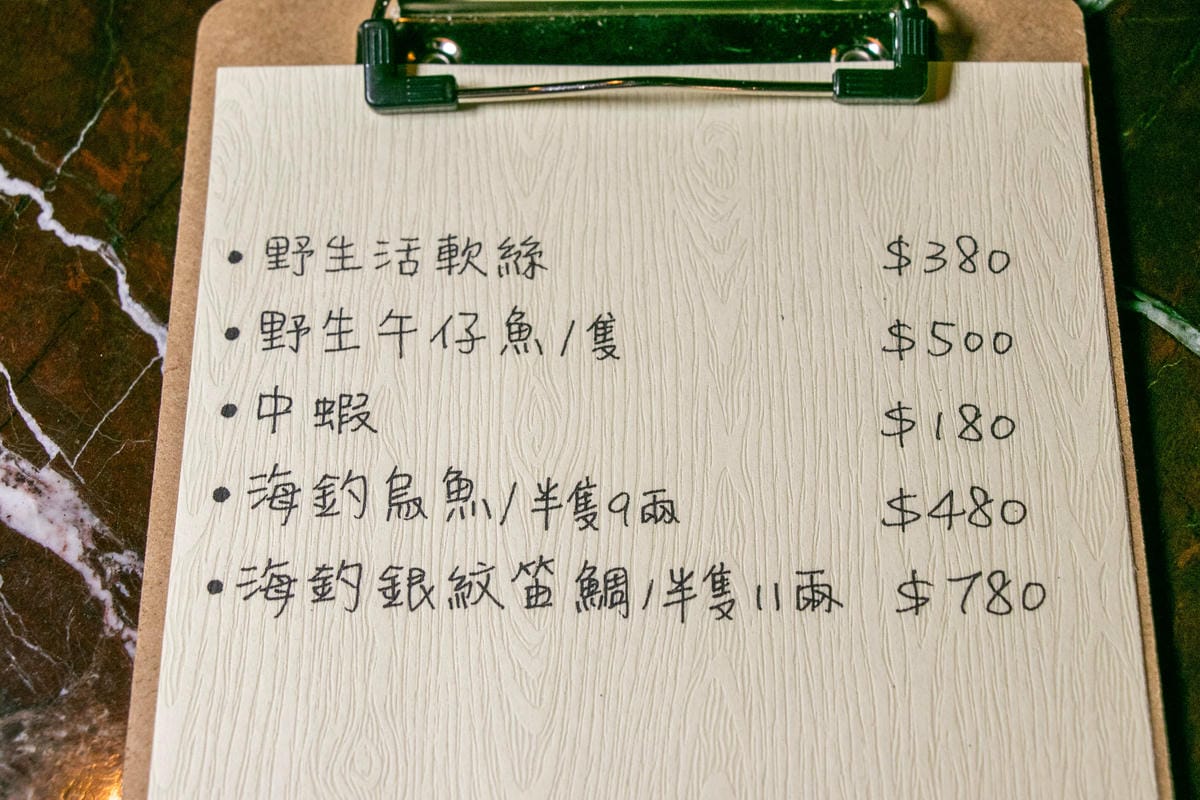 • 野生活軟絲 $380
• 野生午仔魚/隻 $500
• 中蝦 $180
• 海釣烏魚/半隻9兩 $480
• 海釣銀紋笛鯛/半隻11兩 $780